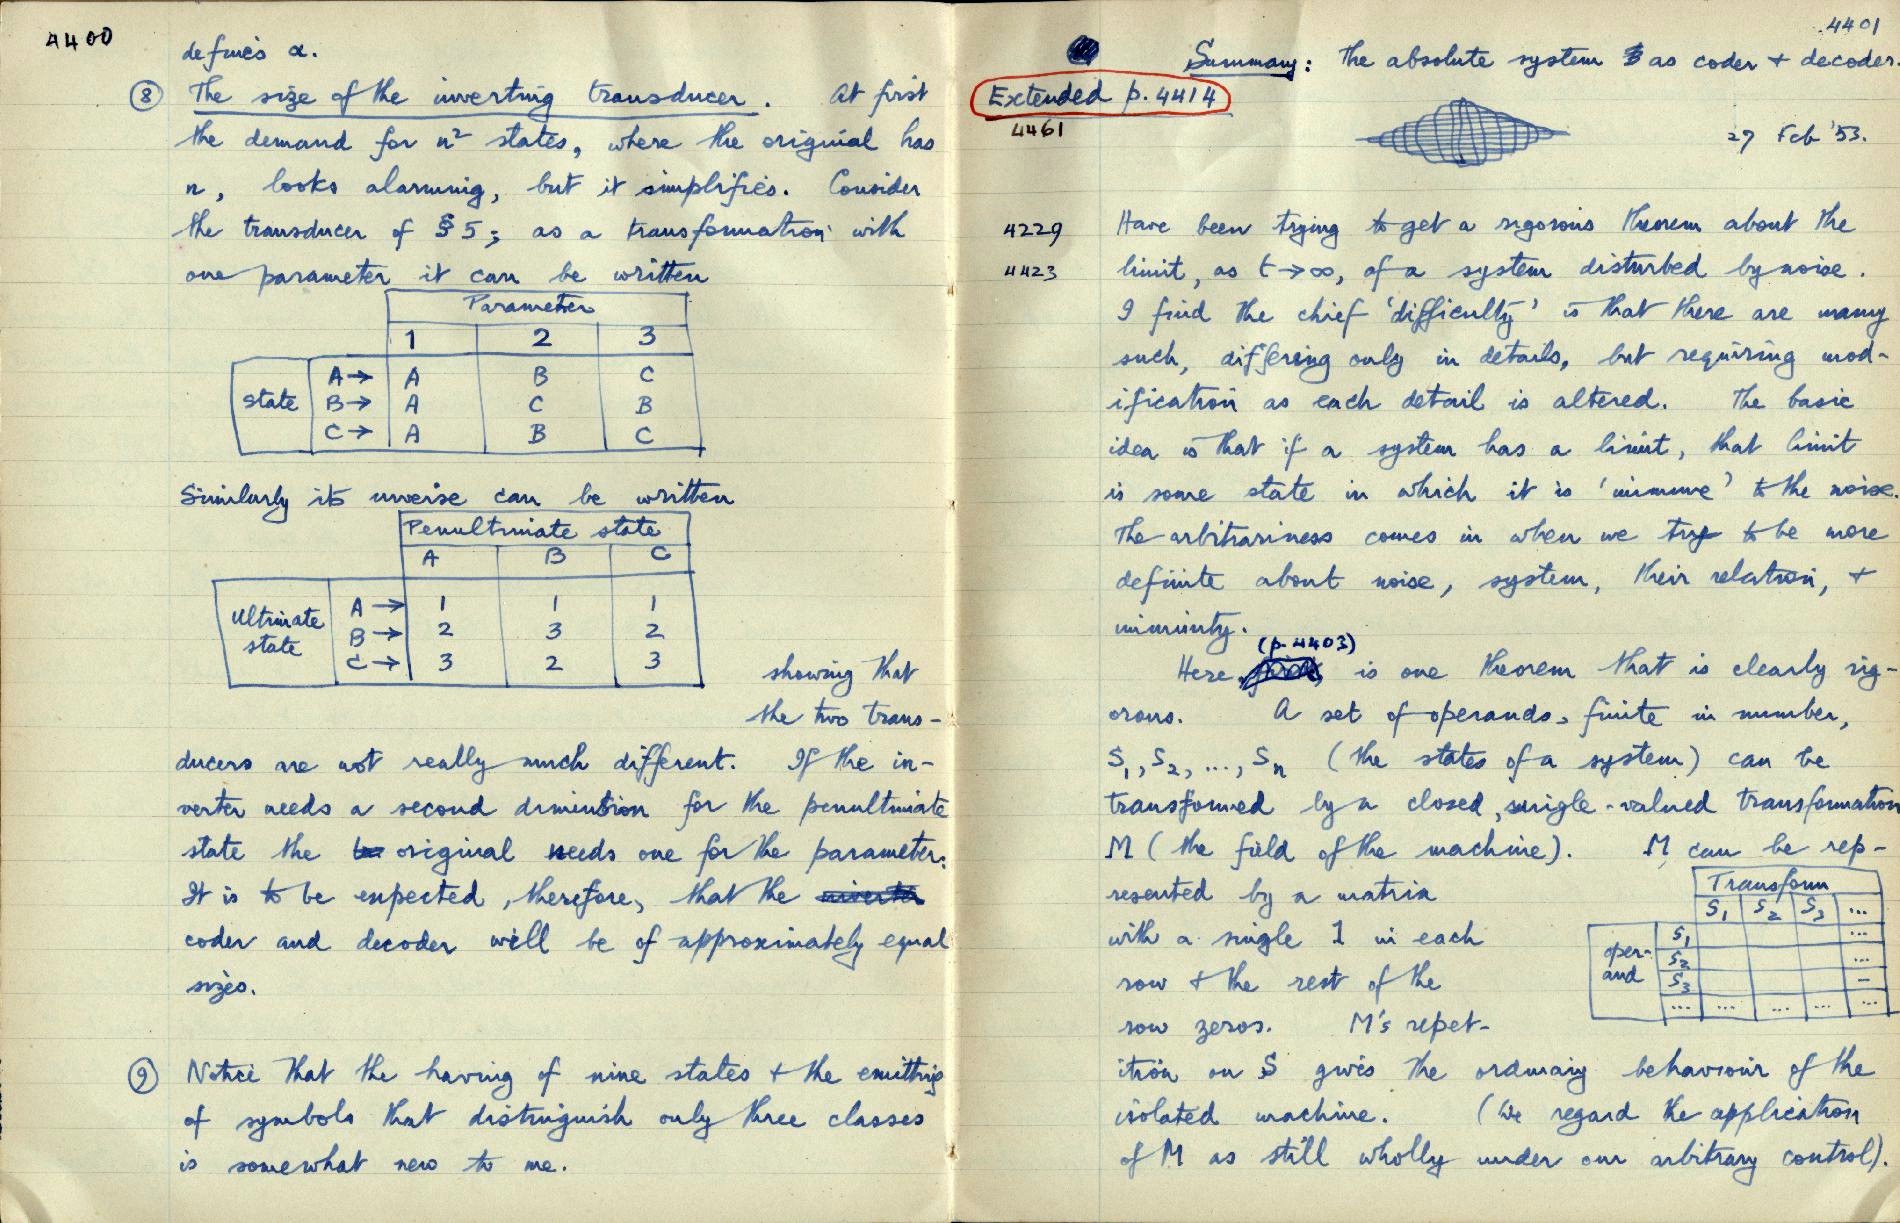 4400
defines α.
⑧ The size of the inverting transducer. At first
the demand for n² states, where the original has
n, looks alarming, but it simplifies. Consider
the transducer of §5; as a transformation with
one parameter it can be written
Parameter
1 2 3
State
A→ A B C
B→ A C B
C→ A B C
Similarly its inverse can be written
Penultimate state
A B C
Ultimate state
A→ 1 1 1
B→ 2 3 2
C→ 3 2 3
showing that
the two trans-
ducers are not really much different. If the in-
verter needs a second dimension for the penultimate
state the original needs one for the parameter.
It is to be expected, therefore, that the inverter
coder and decoder will be of approximately equal
sizes.
⑨ Notice that the having of nine states + the emitting
of symbols that distinguish only three classes
is somewhat new to me.
4401
Summary: The absolute system as coder + decoder.
Extended p. 4414
4461
27 Feb '53.
4229 Have been trying to get a rigorous theorem about the
4423 limit, as t→∞, of a system disturbed by noise.
I find the chief 'difficulty' is that there are many
such, differing only in details, but requiring mod-
ification as each detail is altered. The basic
idea is that if a system has a limit, that limit
is some state in which it is 'immune' to the noise.
The arbitrariness comes in when we try to be more
definite about noise, system, their relation, +
immunity.
(p. 4403)
Here is one theorem that is clearly rig-
orous. A set of operands, finite in number,
S₁, S₂, ..., Sn (the states of a system) can be
transformed by a closed, single-valued transformation
M (the field of the machine). M can be rep-
resented by a matrix
with a single 1 in each
row + the rest of the
row zeros. M's repet-
Transform
S₁ S₂ S₃ ...
oper-
and
S₁ ...
S₂ ...
S₃ –
... ... ... ... ...
ition on S gives the ordinary behaviour of the
isolated machine. (We regard the application
of M as still wholly under our arbitrary control).